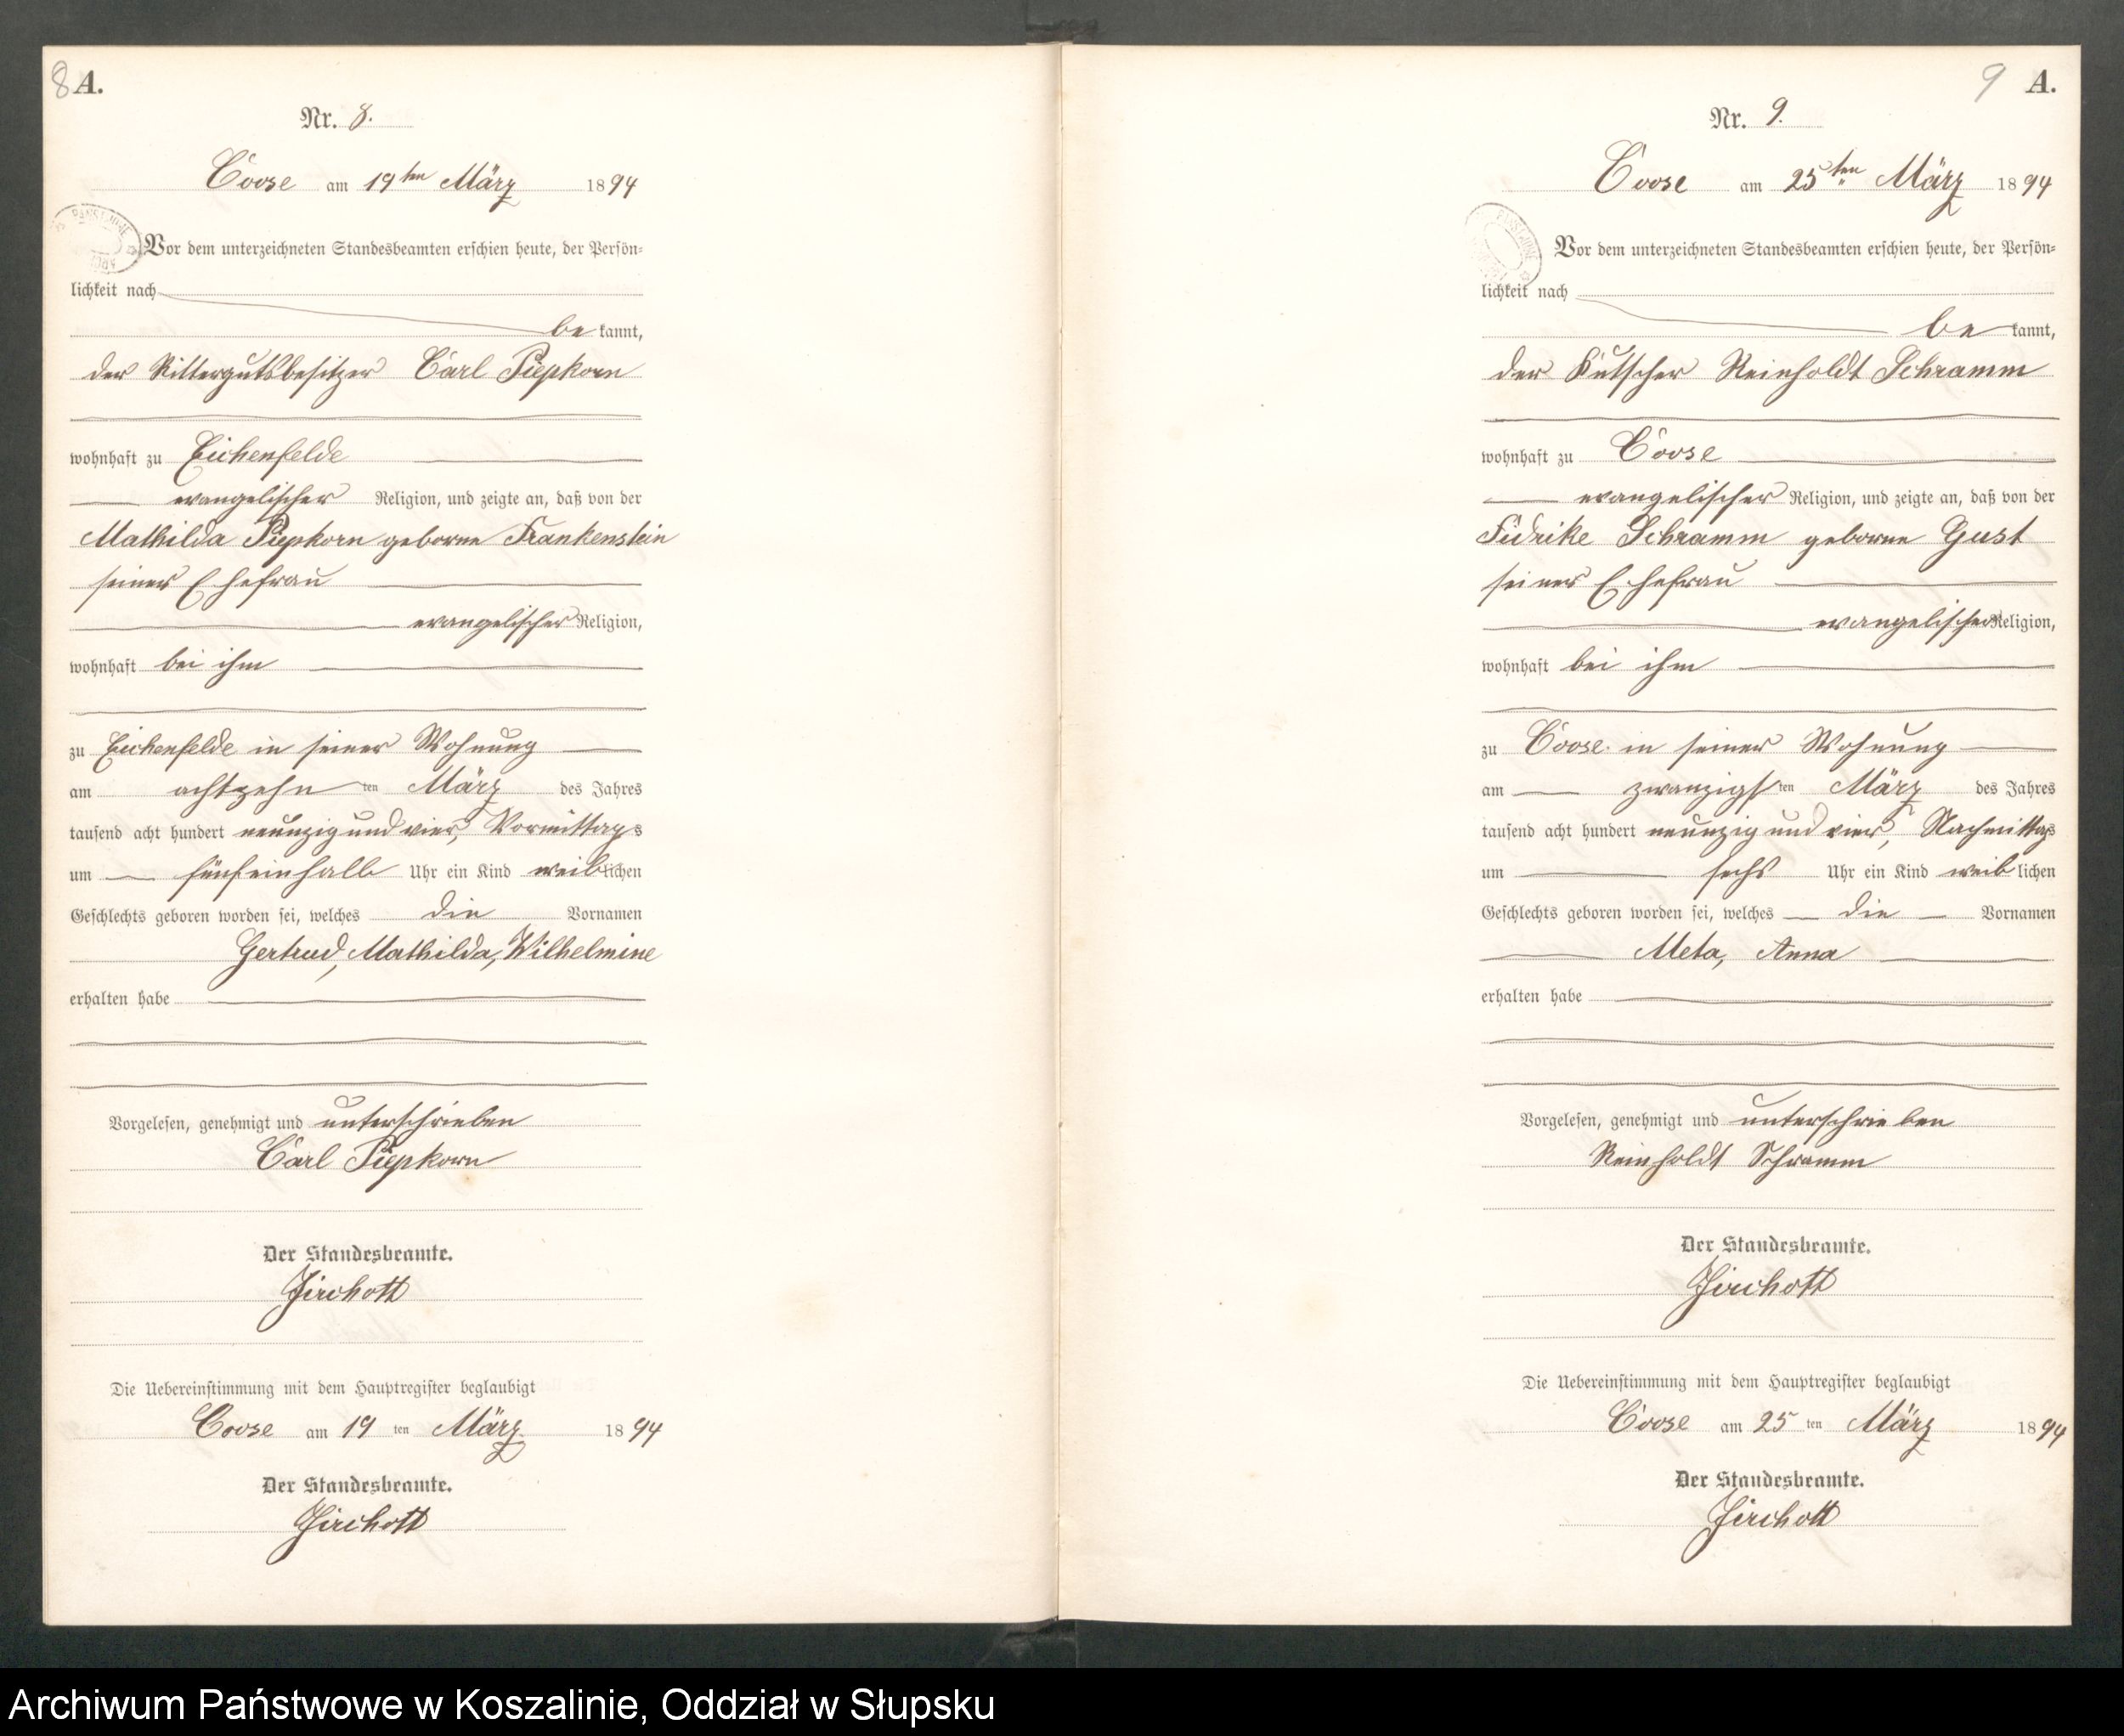 8 A.
Nr. 8.
Coose am 19ten März 1894
Vor dem unterzeichneten Standesbeamten erschien heute, der Persön-
lichkeit nach
be kannt,
der Rittergutsbesitzer Carl Piepkorn
wohnhaft zu Eichenfelde
evangelischer Religion, und zeigte an, daß von der
Mathilda Piepkorn geborne Frankenstein
seiner Ehefrau
evangelischer Religion,
wohnhaft bei ihm
zu Eichenfelde in seiner Wohnung
am achtzehn ten März des Jahres
tausend acht hundert neunzig und vier, Vormittags
um fünfeinhalb Uhr ein Kind weiblichen
Geschlechts geboren worden sei, welches die Vornamen
Gertrud, Mathilda, Wilhelmine
erhalten habe
Vorgelesen, genehmigt und unterschrieben
Carl Piepkorn
Der Standesbeamte.
Die Uebereinstimmung mit dem Hauptregister beglaubigt
Coose am 19 ten März 1894
Der Standesbeamte.
9 A.
Nr. 9.
Coose am 25ten März 1894
Vor dem unterzeichneten Standesbeamten erschien heute, der Persön-
lichkeit nach
be kannt,
der Kutscher Reinholdt Schramm
wohnhaft zu Coose
evangelischer Religion, und zeigte an, daß von der
Fidrike Schramm geborne Gust
seiner Ehefrau
evangelischer Religion,
wohnhaft bei ihm
zu Coose in seiner Wohnung
am zwanzigsten März des Jahres
tausend acht hundert neunzig und vier, Nachmittags
um sechs Uhr ein Kind weiblichen
Geschlechts geboren worden sei, welches die Vornamen
Meta, Anna
erhalten habe
Vorgelesen, genehmigt und unterschrieben
Reinholdt Schramm
Der Standesbeamte.
Die Uebereinstimmung mit dem Hauptregister beglaubigt
Coose am 25 ten März 1894
Der Standesbeamte.
Archiwum Państwowe w Koszalinie, Oddział w Słupsku